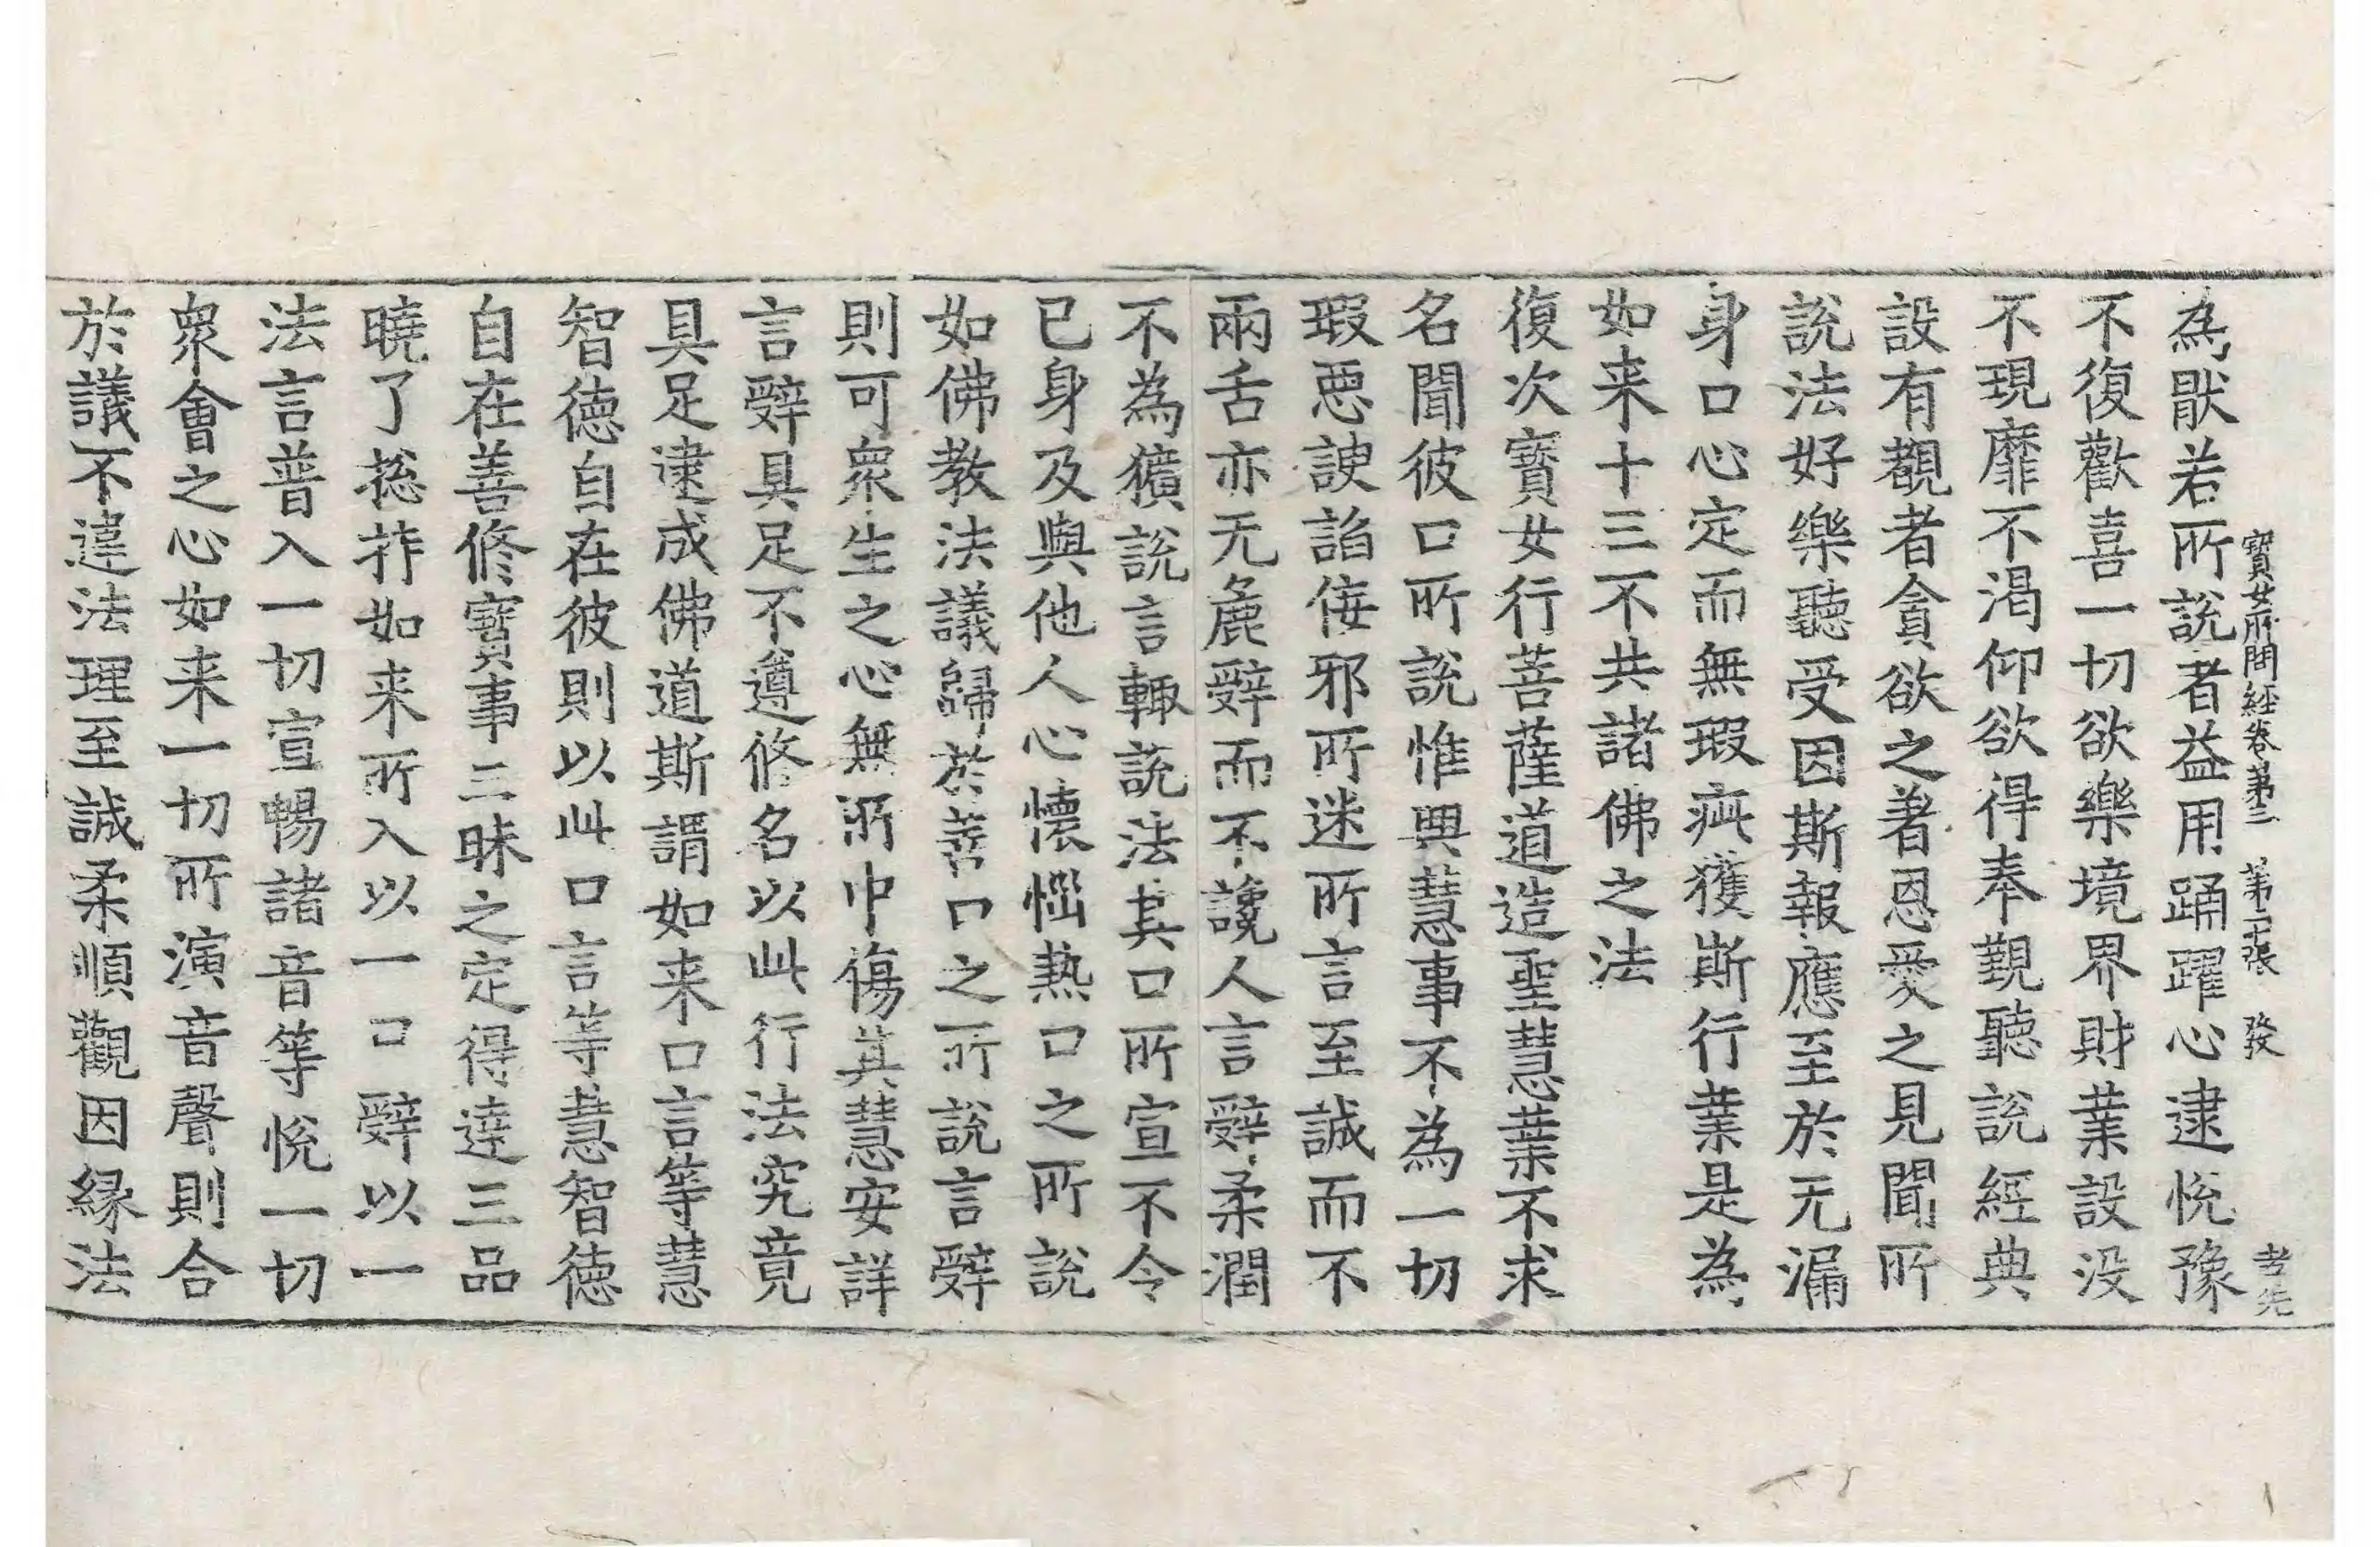 寶女所問經卷第三 第二十張 發 孝先
為猒若所說者益用踊躍心逮悅豫
不復歡喜一切欲樂境界財業設没
不現靡不渴仰欲得奉覲聽說經典
設有覩者貪欲之著恩愛之見聞所
說法好樂聽受因斯報應至於无漏
身口心定而無瑕疵獲斯行業是為
如来十三不共諸佛之法
復次寶女行菩薩道造聖慧業不求
名聞彼口所說惟興慧事不為一切
瑕惡諛諂倿邪所迷所言至誠而不
兩舌亦无麁辤而不讒人言辤柔潤
不為獷說言輙說法其口所宣不令
已身及與他人心懷惱熱口之所說
如佛教法議歸於善口之所說言辤
則可衆生之心無所中傷其慧安詳
言辤具足不遵修名以此行法究竟
具足逮成佛道斯謂如来口言等慧
智德自在彼則以此口言等慧智德
自在善修寶事三昧之定得達三品
曉了捴持如来所入以一口辤以一
法言普入一切宣暢諸音等悅一切
衆會之心如来一切所演音聲則合
於議不違法理至誠柔順觀因緣法